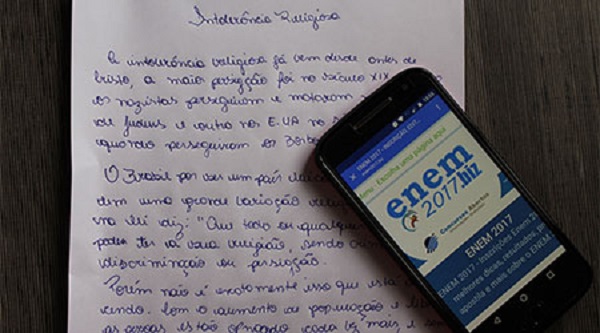 Intolerância Religiosa
A intolerância religiosa já vem desde antes de
Cristo, a maior perseguição foi no século XIX
os nazistas perseguiram e mataram
de judeus e outro nos E.UA no
quando perseguiram os
O Brasil por ser um país laico
tem uma grande variação
na lei diz: "Que todo ou qualquer
poder ter sua religião, sendo
discriminação ou perseguição.
Porém não é exatamente isso que está
Com o aumento da população e
as pessoas estão ficando cada vez mais e
ENEM 2017 - INSCRIÇÃO, EDIT...
menu: Escolha uma página aqui
enem
2017.biz
Concursos Abertos
ENEM 2017
ENEM 2017 - Inscrições Enem
melhores dicas, resultados,
apostila e mais sobre o ENEM